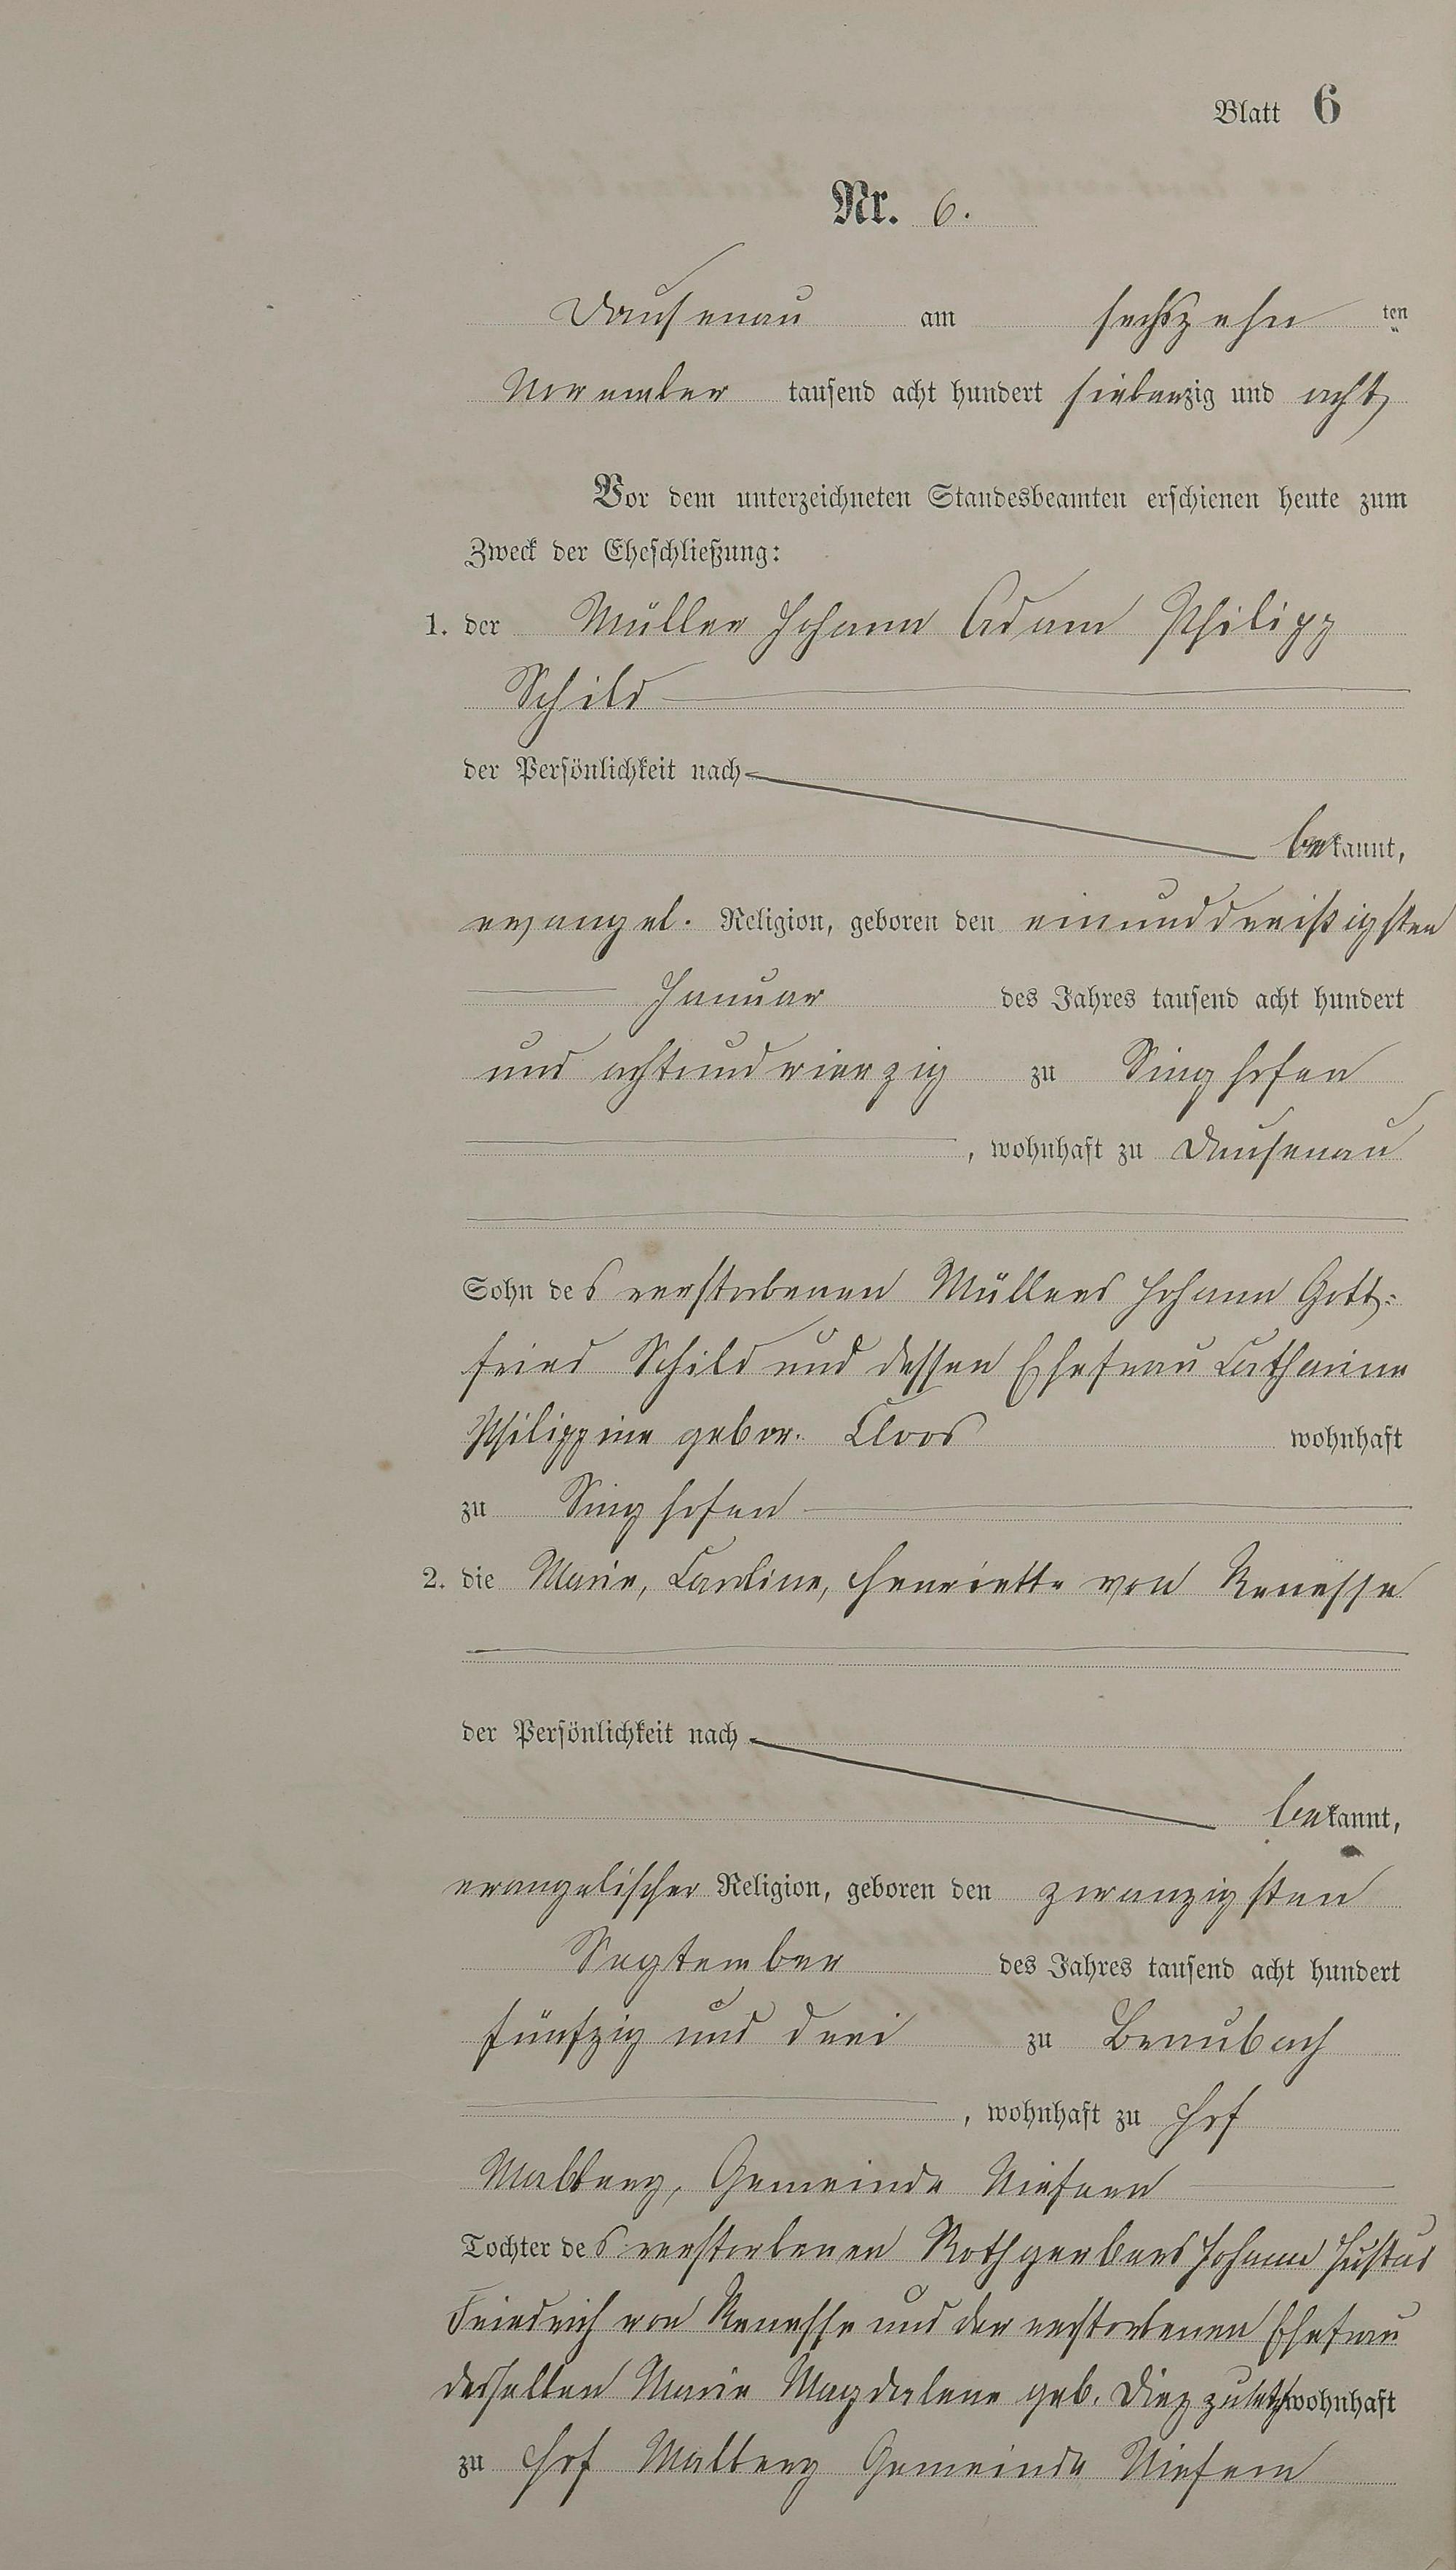 Blatt 6
Nr. 6.
Dausenau am sechszehn ten
November tausend acht hundert siebenzig und acht
Vor dem unterzeichneten Standesbeamten erschienen heute zum
Zweck der Eheschließung:
1. der Müller Johann Adam Philipp
Schild
der Persönlichkeit nach
bekannt,
evangel. Religion, geboren den einunddreißigsten
Januar des Jahres tausend acht hundert
und achtundvierzig zu Singhofen
, wohnhaft zu Dausenau
Sohn des verstorbenen Müllers Johann Gott-
fried Schild und dessen Ehefrau Catharine
Philippine gebor. Cloos wohnhaft
zu Singhofen
2. die Marie, Caroline, Henriette von Renesse
der Persönlichkeit nach
bekannt,
evangelischer Religion, geboren den zwanzigsten
September des Jahres tausend acht hundert
fünfzig und drei zu Braubach
, wohnhaft zu Hof
Malberg, Gemeinde Niefern
Tochter des verstorbenen Rothgerbers Johann Justus
Friedrich von Renesse und der verstorbenen Ehefrau
desselben Marie Magdalene geb. Diez zuletzt wohnhaft
zu Hof Malberg Gemeinde Niefern